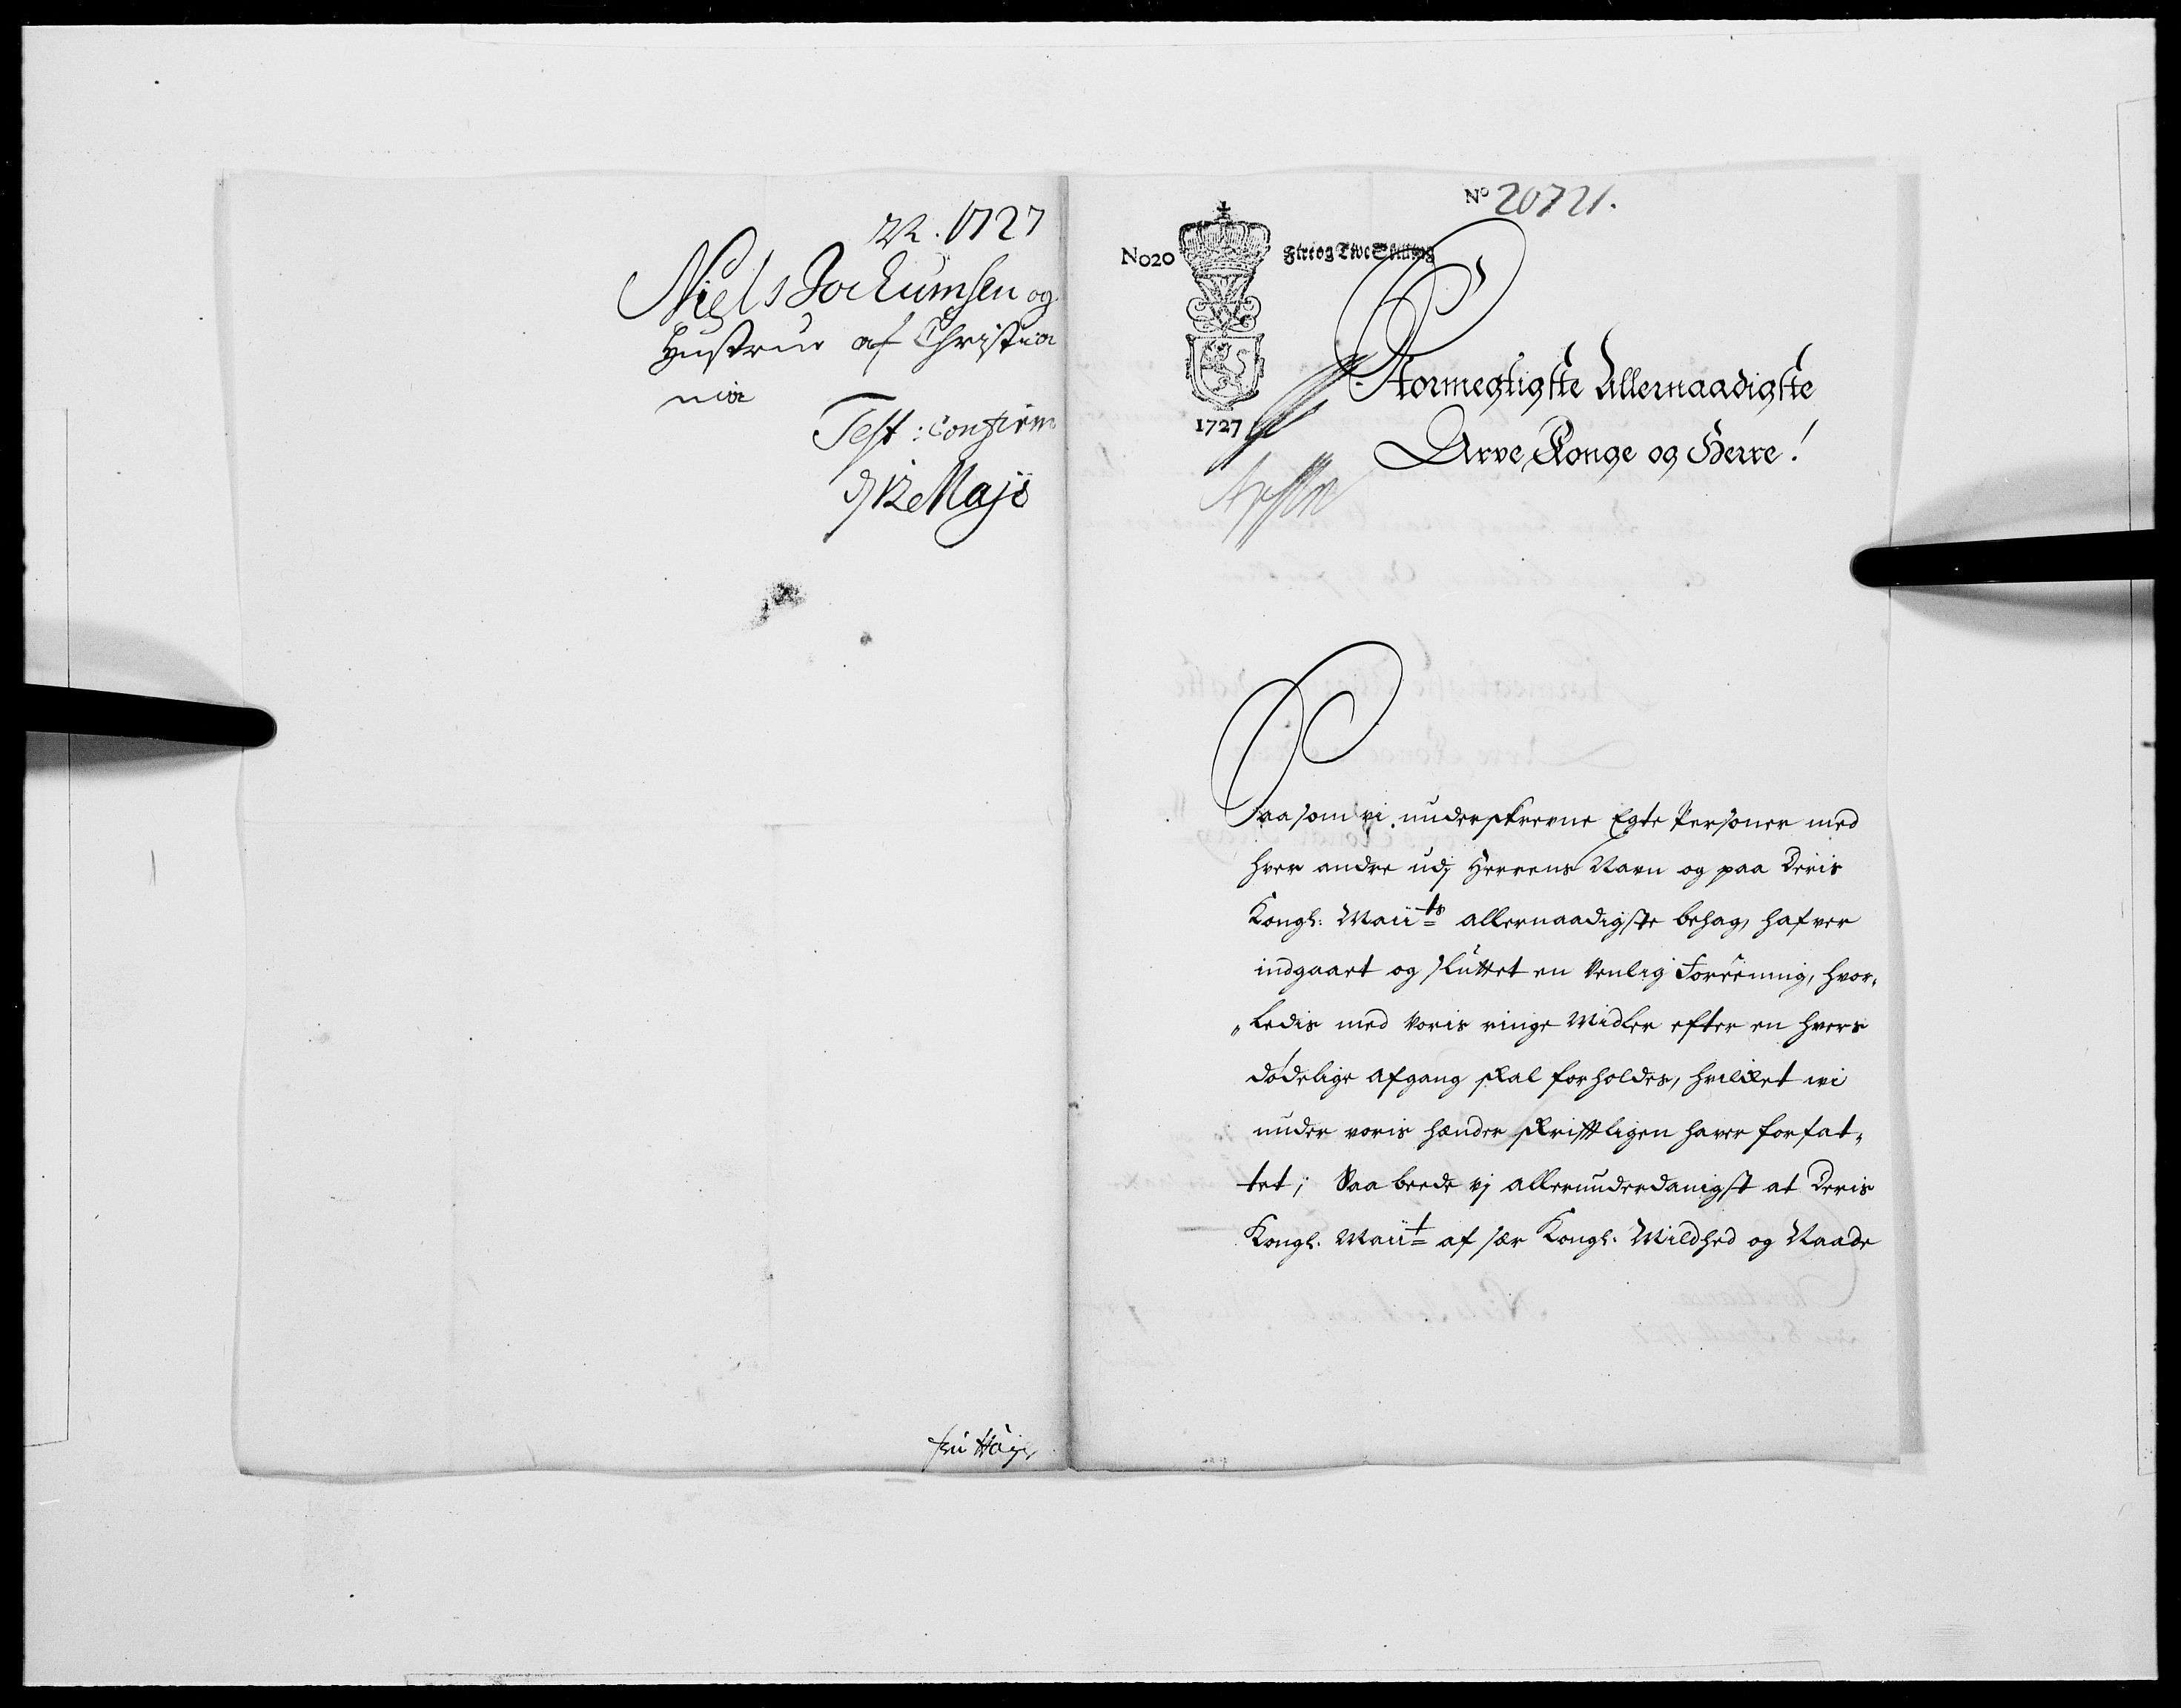 22. 1727
Niels Jochumsen og
Hustrue af Christia
nia
Test: Confirm
d 12 Maji
No 20721.
No20
Fire og Tive Skilling
1727
Stormegtigste Allernaadigste
Arve Konge og Herre!
Saasom vi underskrevne Egte Personer med
hver andre udj Herrens Navn og paa Deris
Kongl: Maiits allernaadigste behag, hafver
indgaaet og sluttet en venlig Foreening, hvor„
„ledis med voris ringe Midler efter en hvers
dødelige afgang skal forholdes, hvilket wi
under voris hænder skrifftligen haver forfat„
tet; Saa beede vj allerunderdanigst at Deris
Kongl. Maiit af sær Kongl: Mildhed og Naade